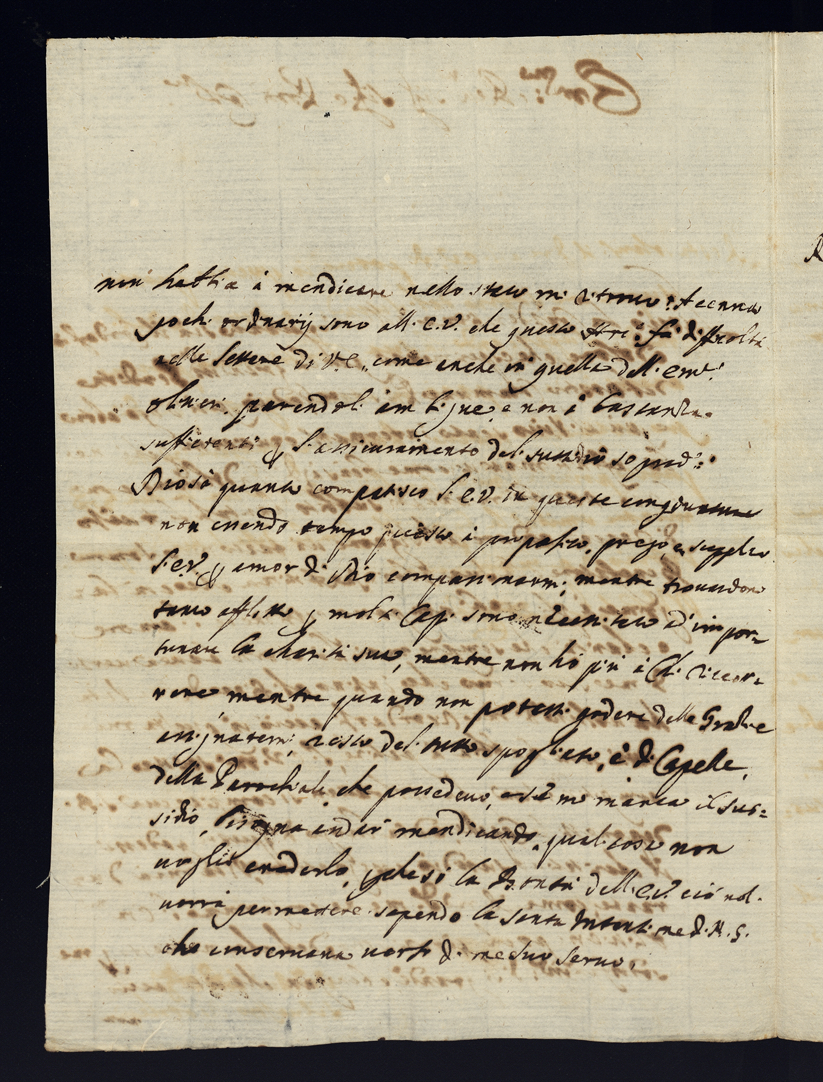 non habbia à mendicare nello stato mi ritrovo: Accenna
pochi ordinarij sono all. E.V. che questo fà difficoltà
nelle lettere di V.E., come anche in quella dell. Em.
Oliuieri, parendoli ambigue, e non à bastanza
sufficienti l'assicuramento del
Dio sà quanto compatisco l. E.V. in queste congionture
non essendo tempo questo à proposito, prego e supplico
l. E.V. amor di Dio compassionarmi, mentre trouandomi
tanto afflitto molti Capi sono necessitato ad impor=
tunare la charità sua, mentre non hò più à chi ricor=
rere mentre quando non potessi godere delle Gratie
assignatemi, resto del tutto spogliato, è di Capelle,
della Parochiali che possedeuo, e se mi manca il sus=
sidio, bisogna andar mendicando, qual cosa non
uoglio crederlo, la Bontà dell. E.V. ciò nol
uorrà permettere sapendo la santa Intentione di N. S.
che conseruaua uerso di me suo seruo.